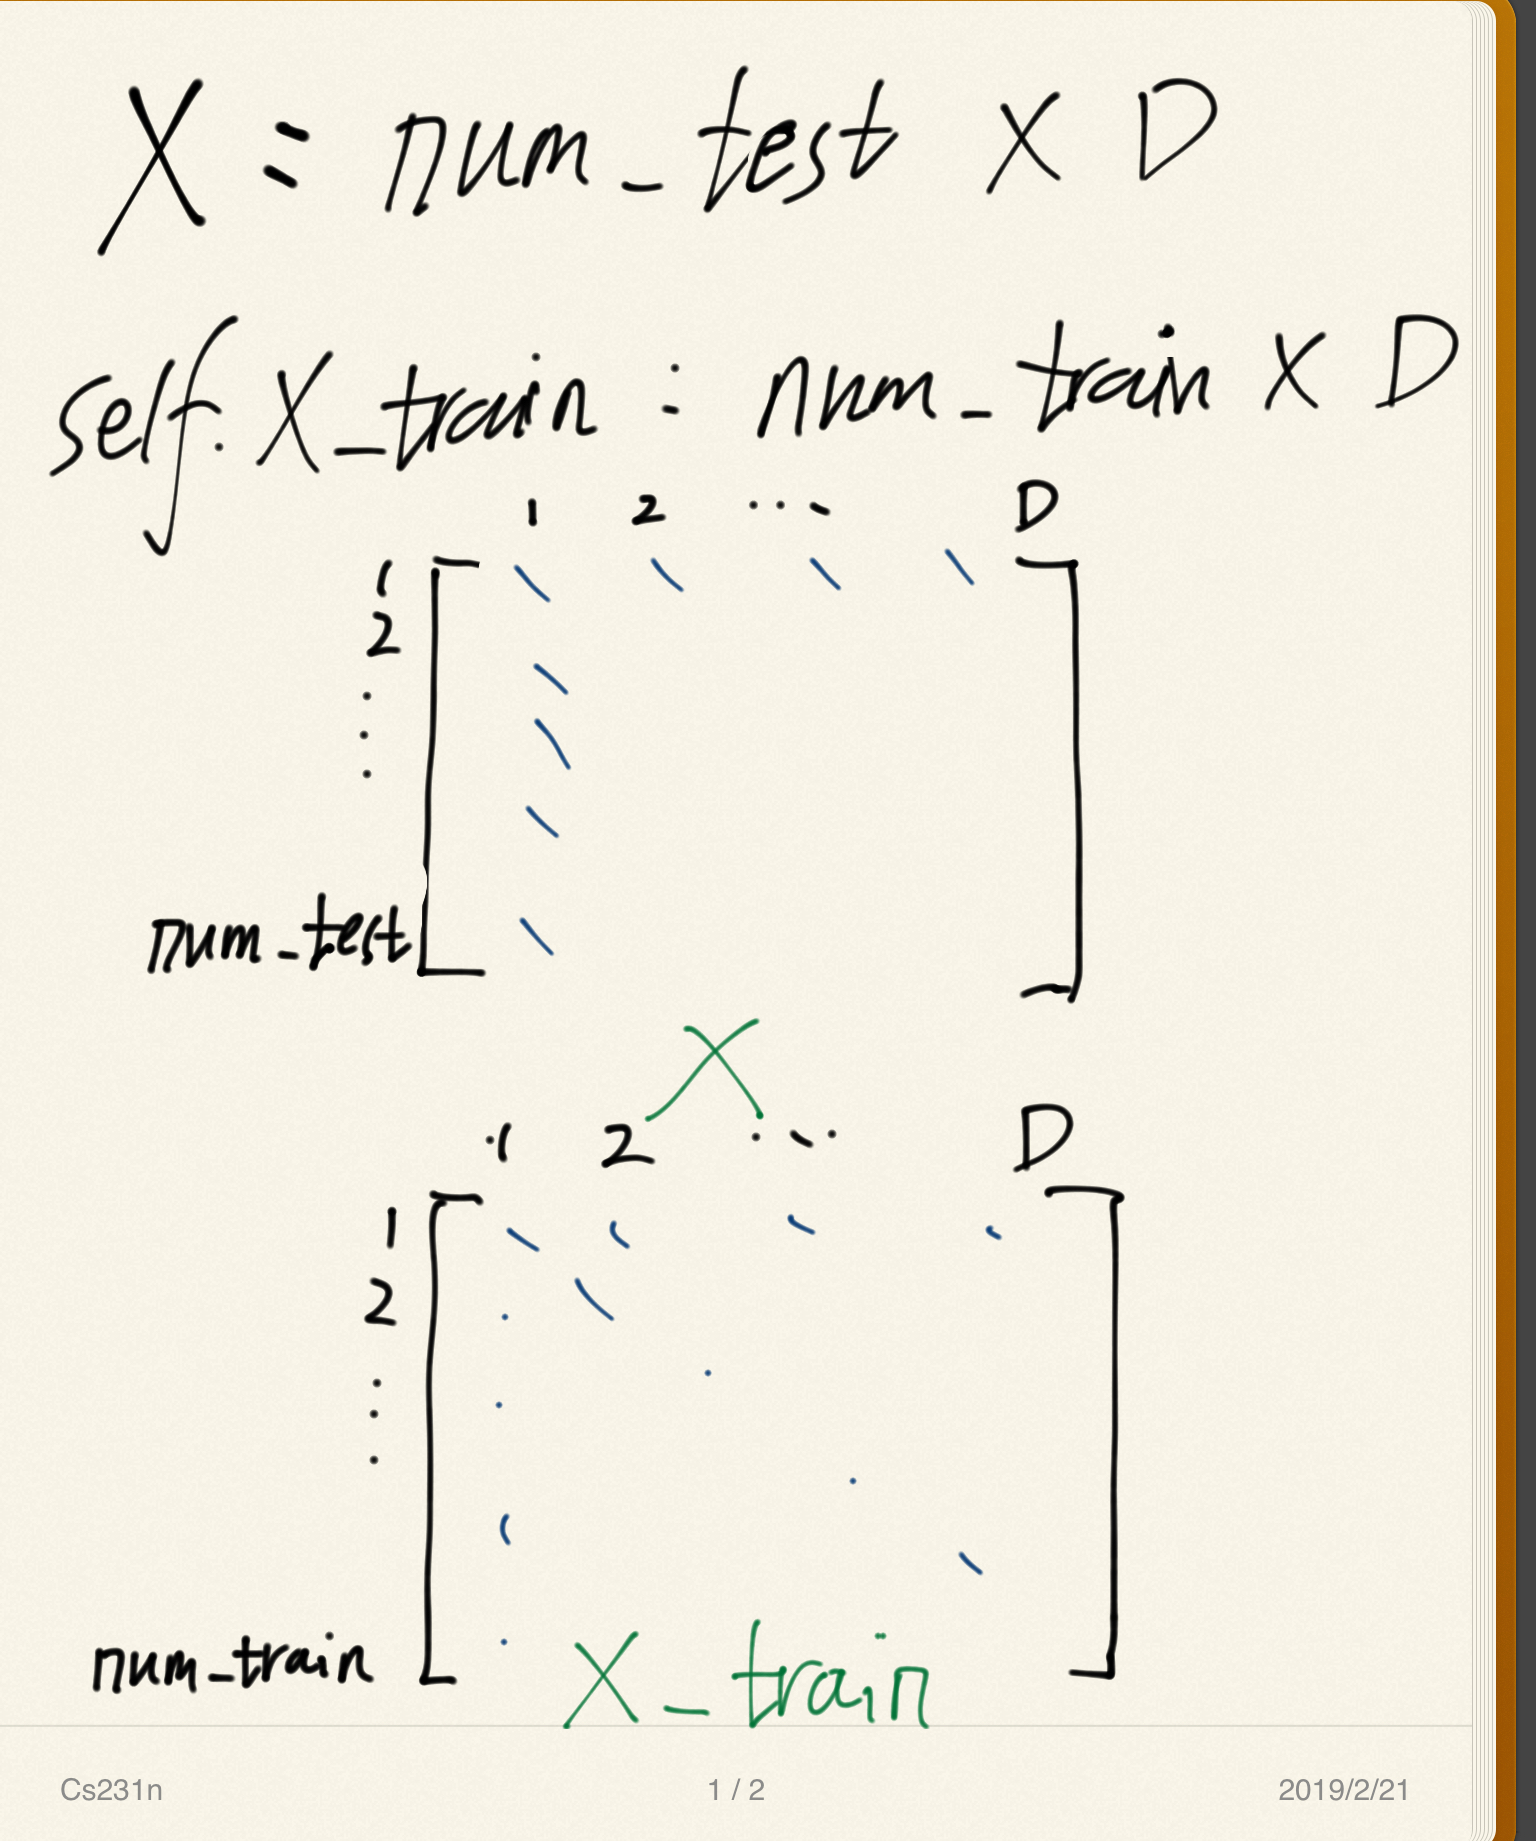 X = num_test X D
self.X_train : num_train X D
1 2 ... D
1
2
⋮
num_test
X
1 2 ... D
1
2
⋮
num_train
X_train
Cs231n 1 / 2 2019/2/21